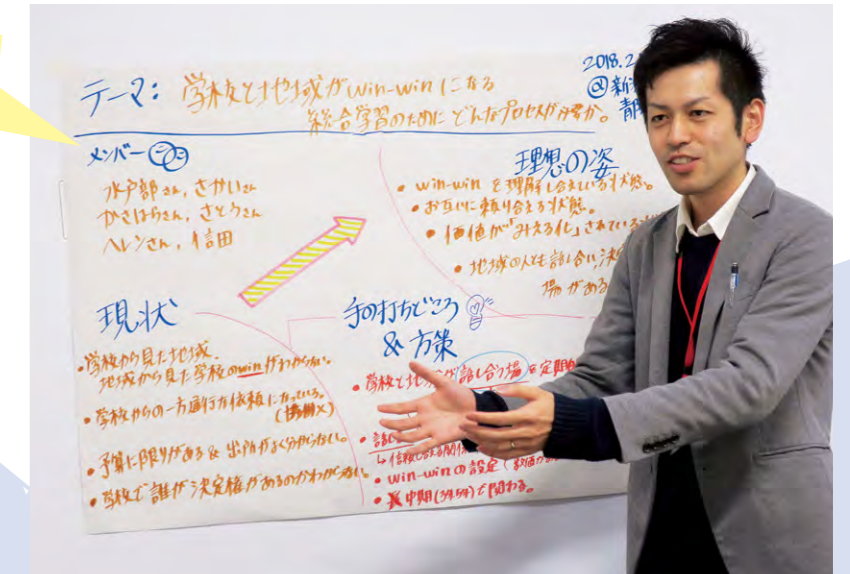 テーマ: 学校と地域がwin-winになる
総合学習のためにどんなプロセスが必要か。
2018.2
@新
青
メンバー
水戸部さん, さかいさん
かさはらさん, さとうさん
ヘレンさん, 信田
理想の姿
・win-winを理解し合えている状態。
・お互いに頼り合える状態。
・価値が「みえる化」されている
・地域の人とも話し合い、決
場がある
現状
・学校から見た地域.
地域から見た学校のwinがわからない。
・学校からの一方通行な依頼になっている。
・予算に限りがある & 出所がよく分からない。
・学校で誰が決定権があるのかわからない。
手の打ちどころ
& 方策
・学校と地域が話し合う場を定期
・話し
↳信頼し合える関係
・win-winの設定(
・長中期(3年5年)で関わる。